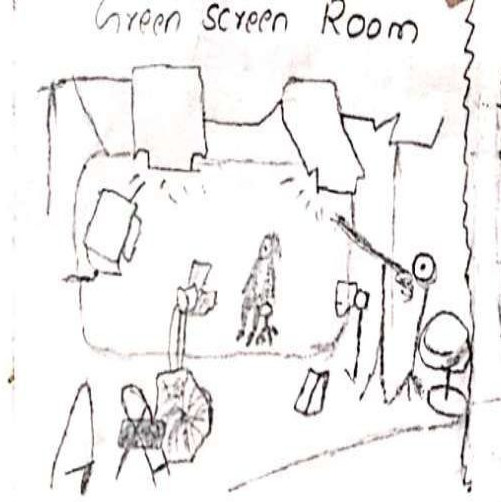 Green screen Room